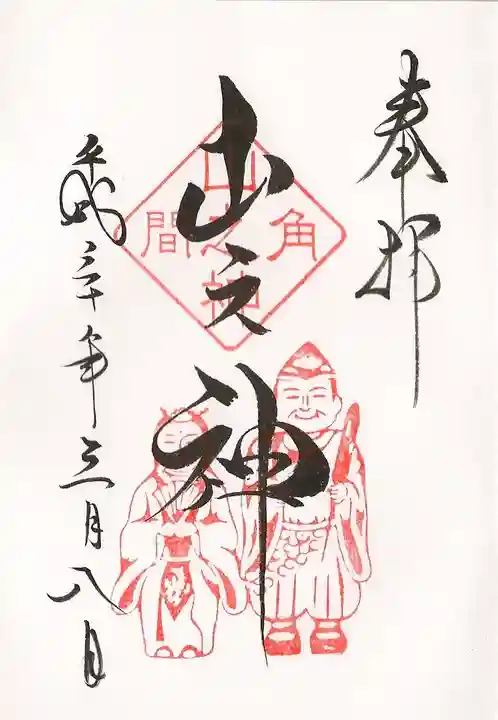 奉拝
山之神
角間
山之神
平成三十年三月八日